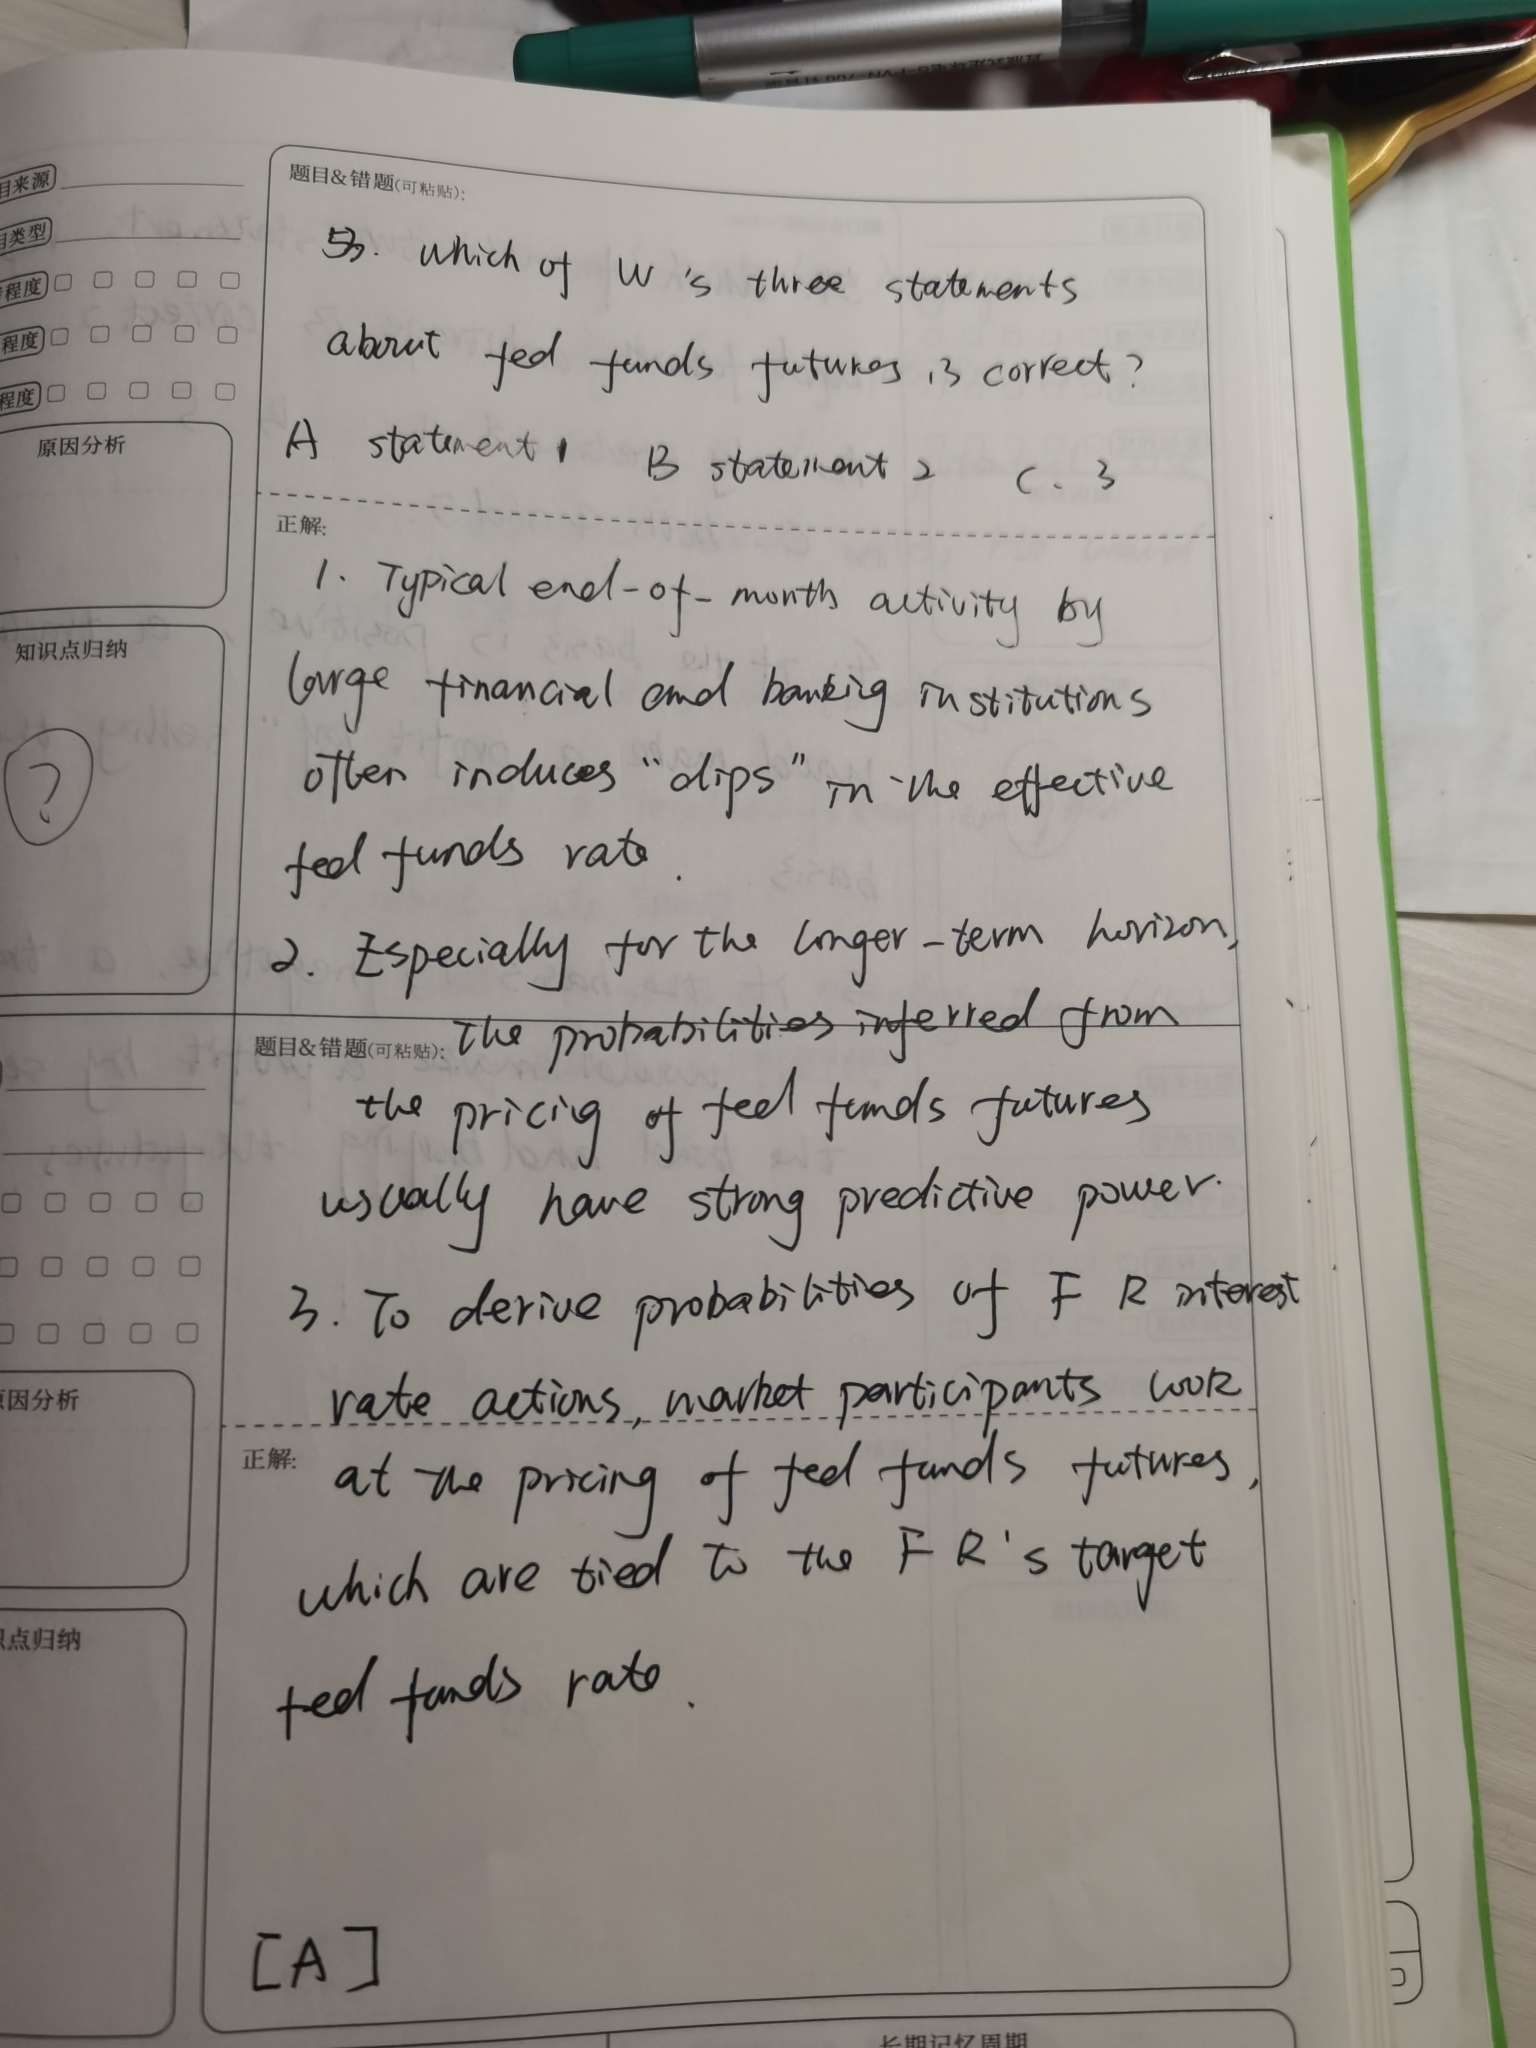 目来源
目类型
程度
程度
程度
原因分析
知识点归纳
?
题目&错题(可粘贴):
53. which of W's three statements
about fed funds futures is correct?
A statement 1 B statement 2 C. 3
正解:
1. Typical end-of-month activity by
large financial and banking institutions
often induces "dips" in the effective
fed funds rate.
2. Especially for the longer-term horizon,
题目&错题(可粘贴):
the probabilities inferred from
the pricing of fed funds futures
usually have strong predictive power.
3. To derive probabilities of F R interest
rate actions, market participants look
原因分析
正解:
at the pricing of fed funds futures,
which are tied to the F R's target
fed funds rate.
识点归纳
[A]
长期记忆周期